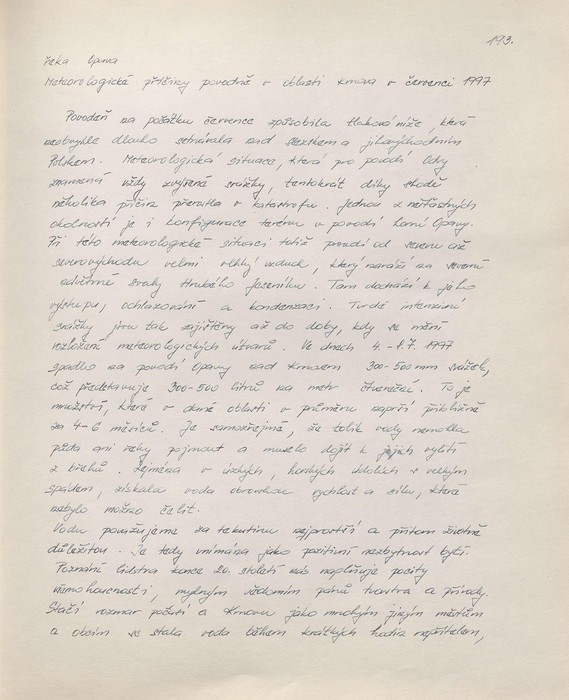 193.
Řeka Opava
Meteorologické příčiny povodně v oblasti Krnova v červenci 1997
Povodeň na počátku července způsobila tlaková níže, která
neobvykle dlouho setrvávala nad Slezskem a jihovýchodním
Polskem. Meteorologická situace, která pro povodí Odry
znamená vždy zvýšené srážky, tentokrát díky shodě
několika příčin přerostla v katastrofu. Jednou z nešťastných
okolností je i konfigurace terénu v povodí horní Opavy.
Při této meteorologické situaci totiž proudí od severu až
severovýchodu velmi vlhký vzduch, který naráží na severní
návětrné svahy Hrubého Jeseníku. Tam dochází k jeho
výstupu, ochlazování a kondenzaci. Tvrdé intenzivní
srážky jsou tak zajištěny až do doby, kdy se mění
rozložení meteorologických útvarů. Ve dnech 4. - 8.7. 1997
spadlo na povodí Opavy nad Krnovem 300-500 mm srážek,
což představuje 300-500 litrů na metr čtvereční. To je
množství, které v dané oblasti v průměru naprší přibližně
za 4-6 měsíců. Je samozřejmé, že tolik vody nemohla
půda ani řeky pojmout a muselo dojít k jejich vylití
z břehů. Zejména v úzkých, horských údolích s velkým
spádem, získala voda obrovskou rychlost a sílu, které
nebylo možno čelit.
Vodu považujeme za tekutinu nejprostší a přitom životně
důležitou. Je tedy vnímána jako pozitivní nezbytnost bytí.
Poznání lidstva konce 20. století nás naplňuje pocity
všemohoucnosti, mylným vědomím pánů tvorstva a přírody.
Stačí rozmar počasí a Krnovu jako mnohým jiným městům
a obcím se stala voda během krátkých hodin nepřítelem,